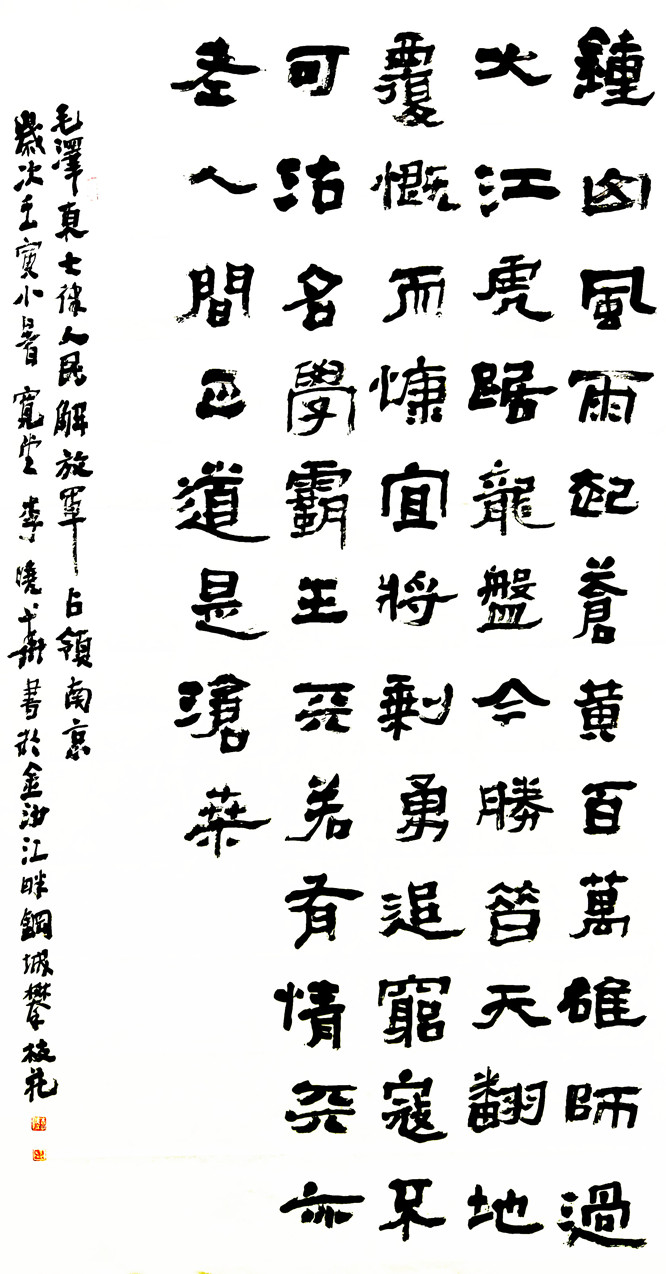 鍾山風雨起蒼黃百萬雄師過
大江虎踞龍盤今勝昔天翻地
覆慨而慷宜將剩勇追窮寇不
可沽名學霸王天若有情天亦
老人間正道是滄桑
毛澤東七律人民解放軍占領南京
歲次壬寅小暑寬堂李曉書於金沙江畔鋼城攀枝花